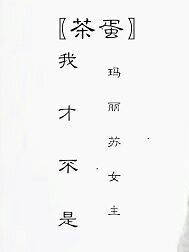 〖茶蛋〗
我才不是
玛丽苏女主